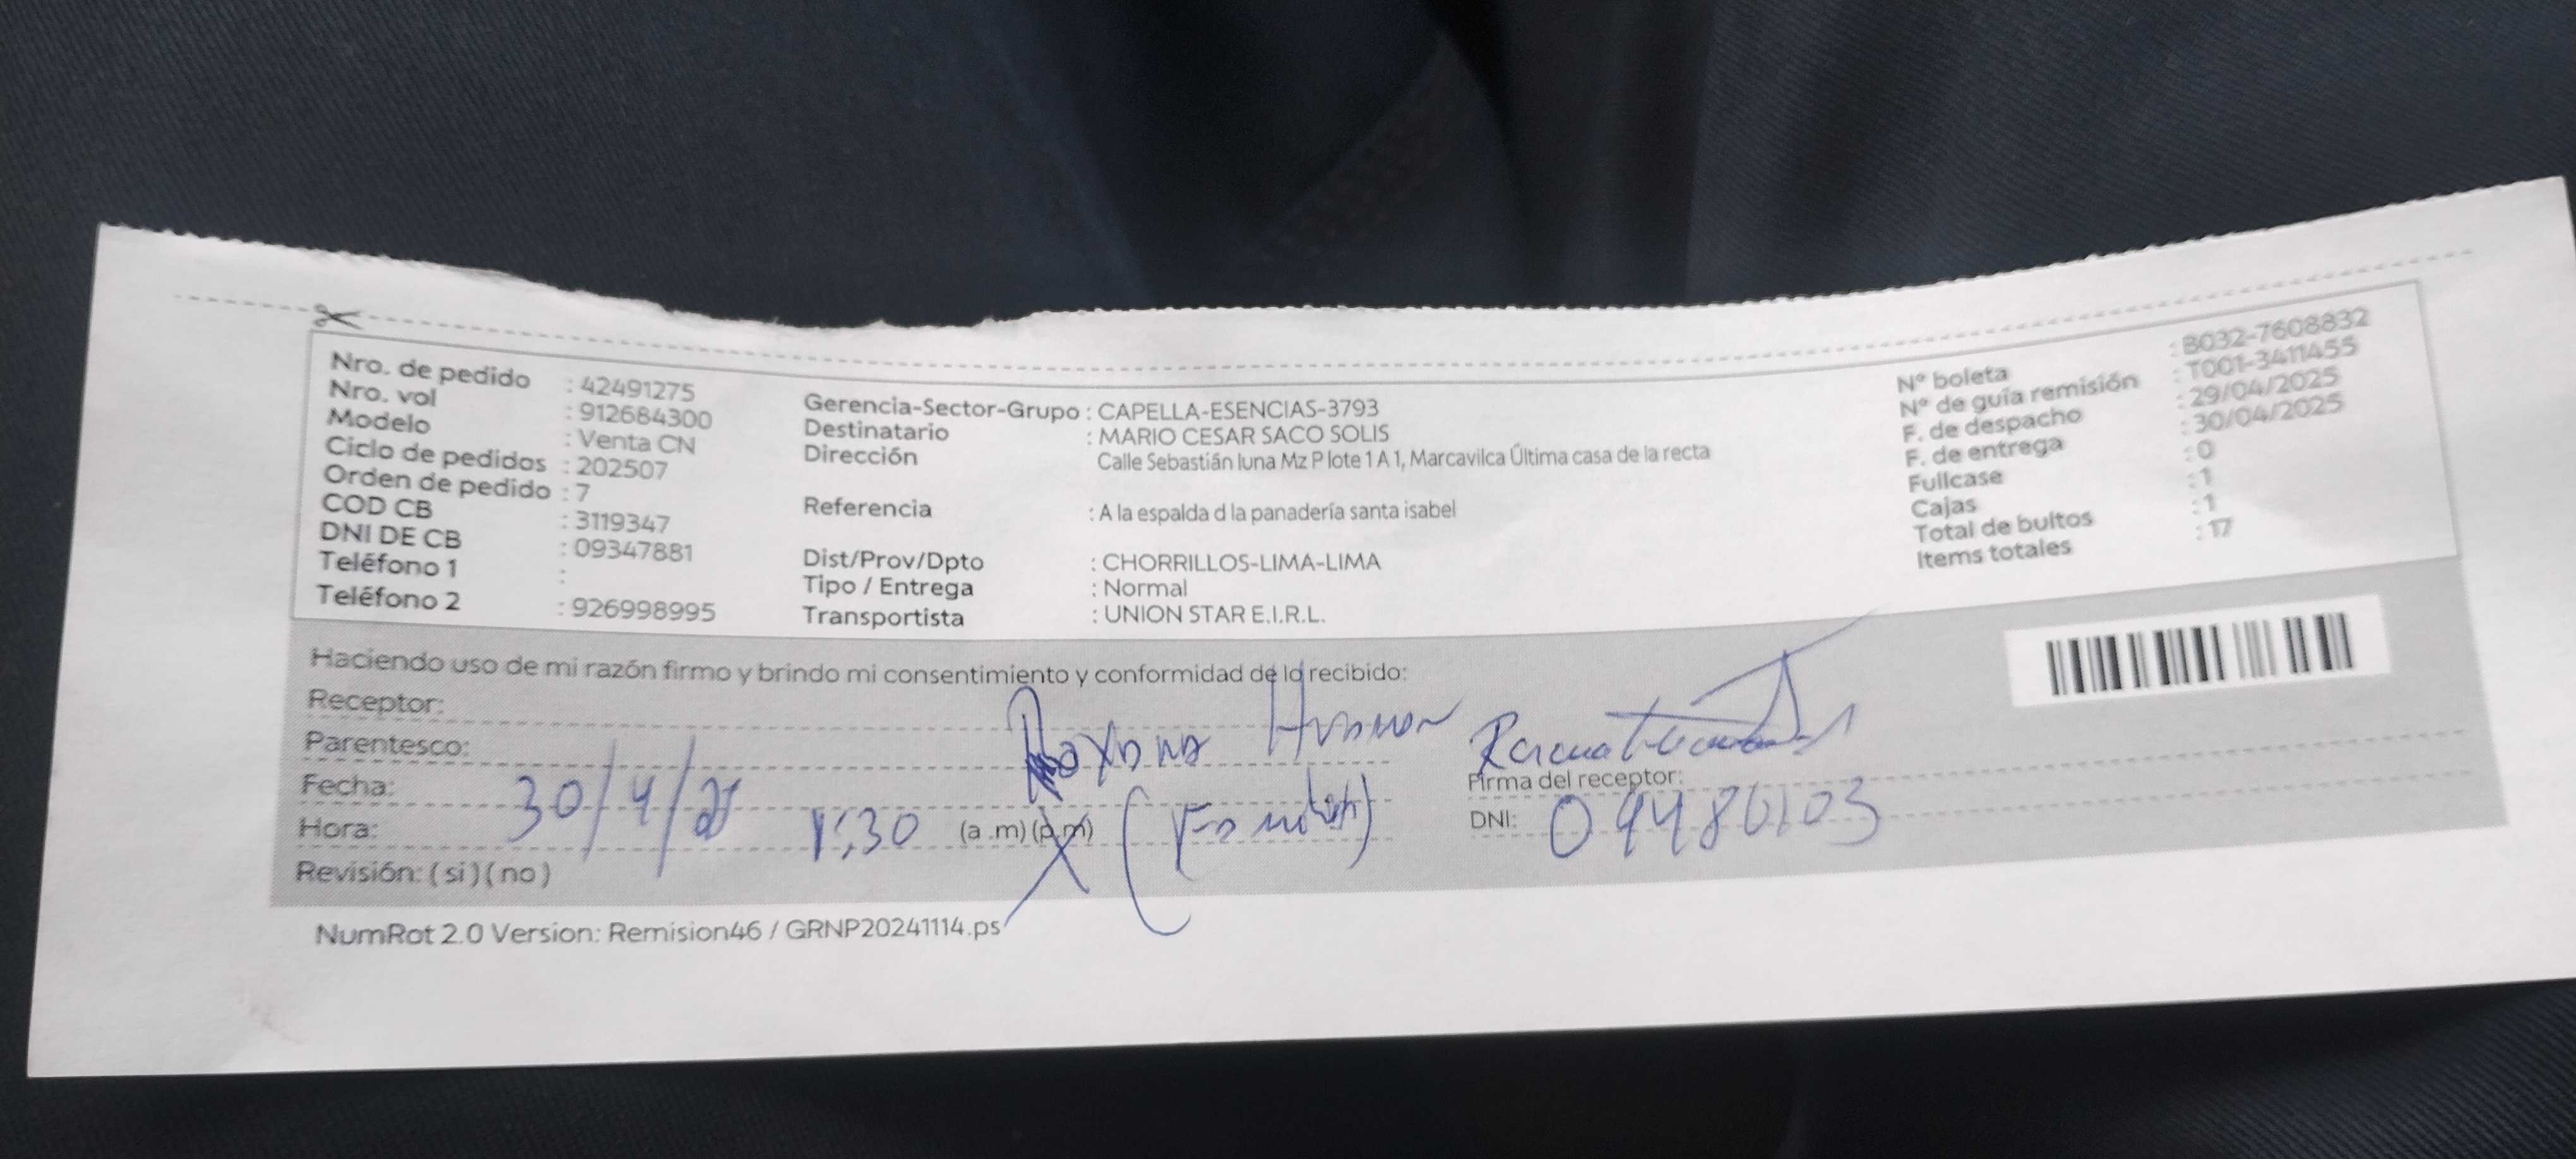 Nro. de pedido : 42491275
Nro. vol : 912684300
Modelo : Venta CN
Ciclo de pedidos : 202507
Orden de pedido : 7
COD CB : 3119347
DNI DE CB : 09347881
Teléfono 1 :
Teléfono 2 : 926998995
Gerencia-Sector-Grupo : CAPELLA-ESENCIAS-3793
Destinatario : MARIO CESAR SACO SOLIS
Dirección Calle Sebastián luna Mz P lote 1 A 1, Marcavilca Última casa de la recta
Referencia : A la espalda d la panadería santa isabel
Dist/Prov/Dpto : CHORRILLOS-LIMA-LIMA
Tipo / Entrega : Normal
Transportista : UNION STAR E.I.R.L.
N° boleta : B032-7608832
N° de guía remisión : T001-3411455
F. de despacho : 29/04/2025
F. de entrega : 30/04/2025
Fullcase : 0
Cajas : 1
Total de bultos : 1
Items totales : 17
Haciendo uso de mi razón firmo y brindo mi consentimiento y conformidad de lo recibido:
Receptor: Roxana
Parentesco:
Fecha: 30/4/25
Hora: 1:30 (a .m) (p.m)
Revisión: ( si ) ( no )
Firma del receptor:
DNI:
NumRot 2.0 Version: Remision46 / GRNP20241114.ps